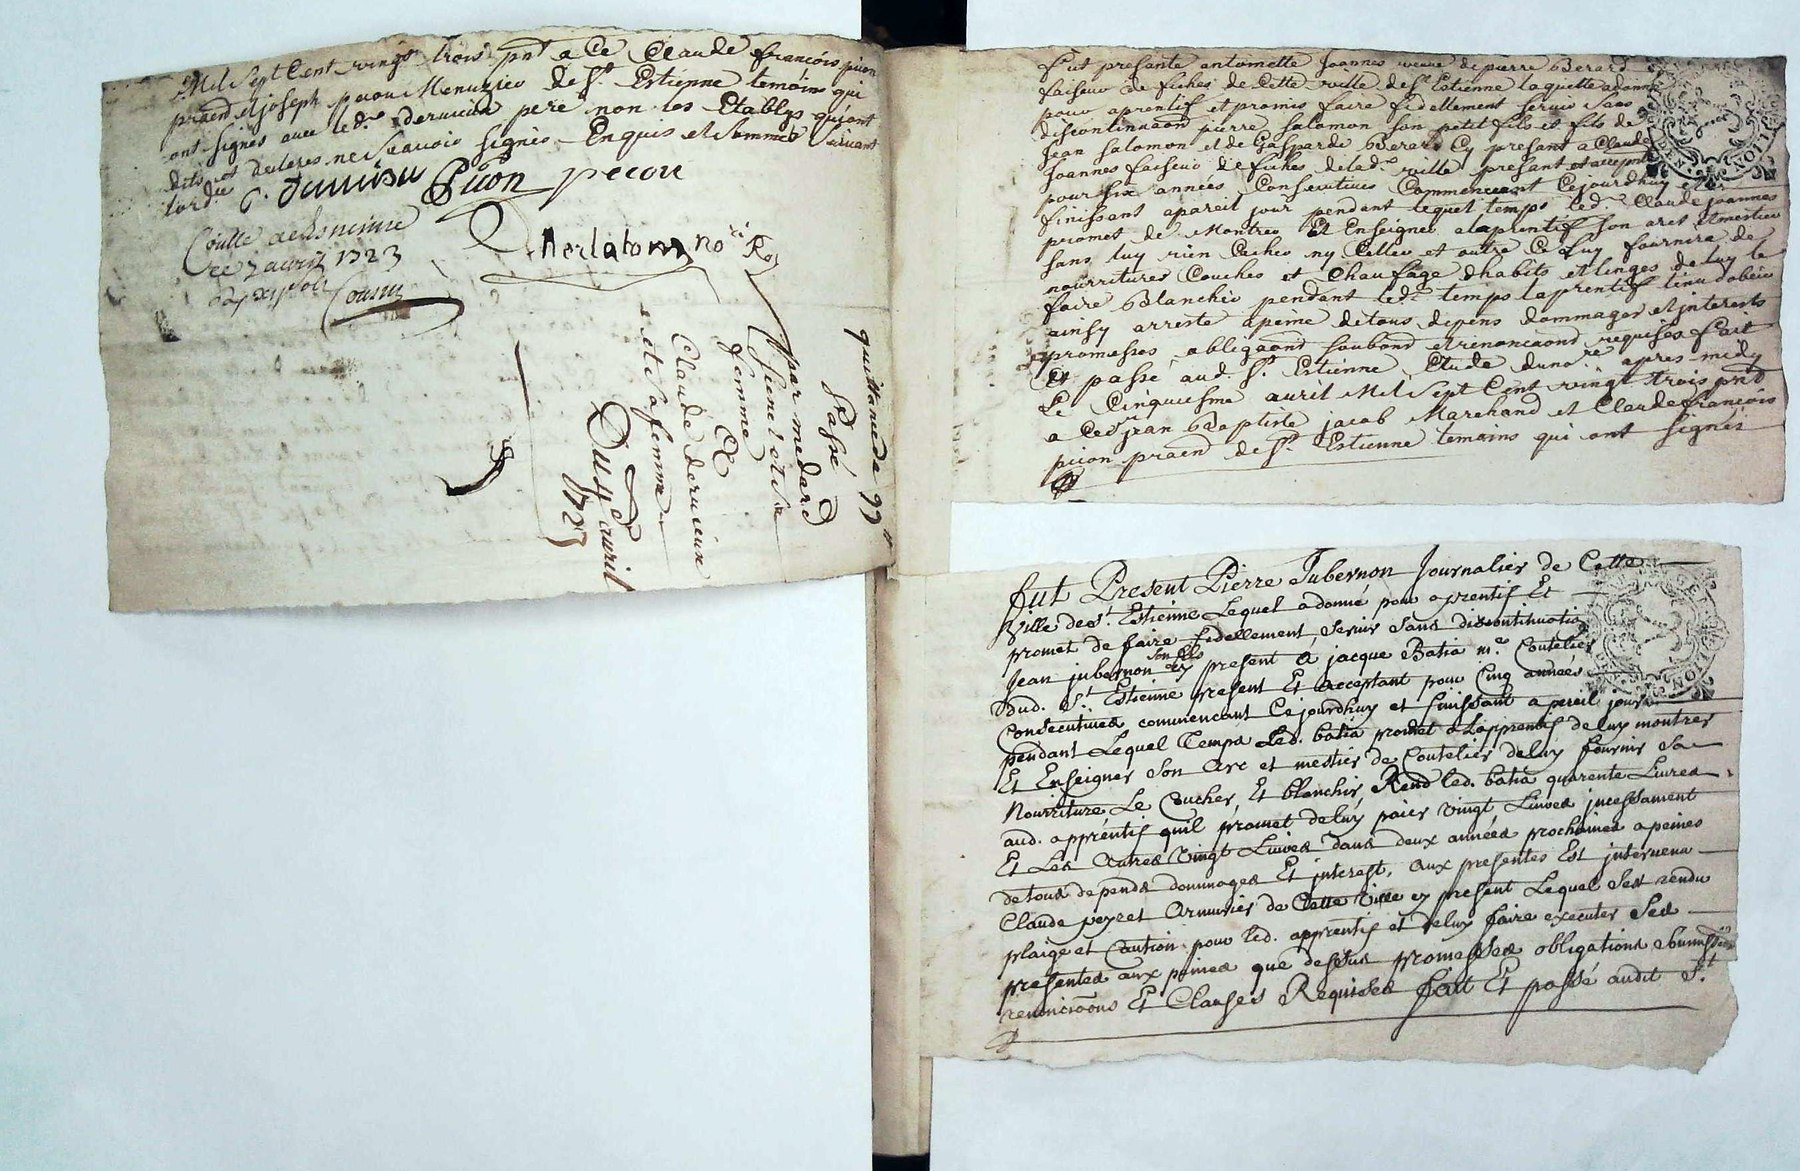 Mil Sept Cent vingt trois pnt a Ce Claude françois picon
praend et joseph pecou Menuzier de St. Estienne temoins qui
ont signés auec led. derucieu pere non les Etablys qui ont
dits et declares ne scauoir signér Enquis et Sommés Suiuant
lord.ce
C. deruisieu Picon pecou
Collé a st estienne
ce 7 avril 1723
solz
Cousin
no. Ro.
quittance de 99 tt
Passé
par medard
et sa
femme
Et
Claude derucieux
et sa femme
Du 4 auril
1723
fut presante antoinette Joannes veuue de pierre Berard
faiseur de fiches de Cette ville de St. Estienne laquelle a donné
pour aprentif et promis faire fidellement seruir sans
discontinuaon pierre Salomon son petit fils et fils de
Jean Salomon et de Gasparde Berard Cy present a Claude
Joannes faiseur de fiches de lad. ville present et accept
pour six années Consecutiues Commencant Cejourdhuy et
finissant a pareil jour pendant lequel temps led. Claude Joannes
promet de Montrer Et Enseigner a laprentif son art et mestier
sans luy rien Cacher ny Celler et outre Ce luy fournira de
nourritures Couches et Chaufage dhabits et linges de luy le
faire Blanchir pendant led. temps laprentif tenu dobeir
ainsy arresté a peine de tous depens dommages et interests
promesses obligaons soubmd et renonceaons requises fait
Et passé aud. St. Estienne Etude du no.re apres midy
Le Cinquiesme auril Mil Sept Cent vingt trois pnd
a Ced. jean Baptiste jacob Marchand et Claude françois
picon praend de St. Estienne temoins qui ont signés
fut Present Pierre Jubernon Journalier de Cette
Ville de St. Estienne Lequel a donné pour aprentif Et
promet de faire fidellement seruir sans discontinuation
Jean jubernon son fils cy present a jacque Batia me. Coutelier
Dud. St. Estienne present Et acceptant pour Cinq années
Consecutiues commencant Cejourdhuy et finissant a pereil jour
pendant Lequel Temps Led. batia promet a Lapprentif de luy montrer
Et Enseigner Son Art et mestier de Coutelier de luy fournir Sa
Nourriture Le Coucher, Et blanchir Rend led. batia quarente Liures
aud. apprentif quil promet de luy paier Vingt Liures jncessament
Et Les Autres Vingt Liures dans deux années prochaines a peines
de tous depends dommages Et jnterest, aux presentes Est jnteruenu
Claude peyret Armurier de Cette Ville cy present Lequel Ses rendu
plaige et Caution pour led. apprentif et de luy faire executer Ses
presentes aux peines que dessus promesses obligations soumissons
renonciaons Et Clauses Requises fait Et passé audit St.